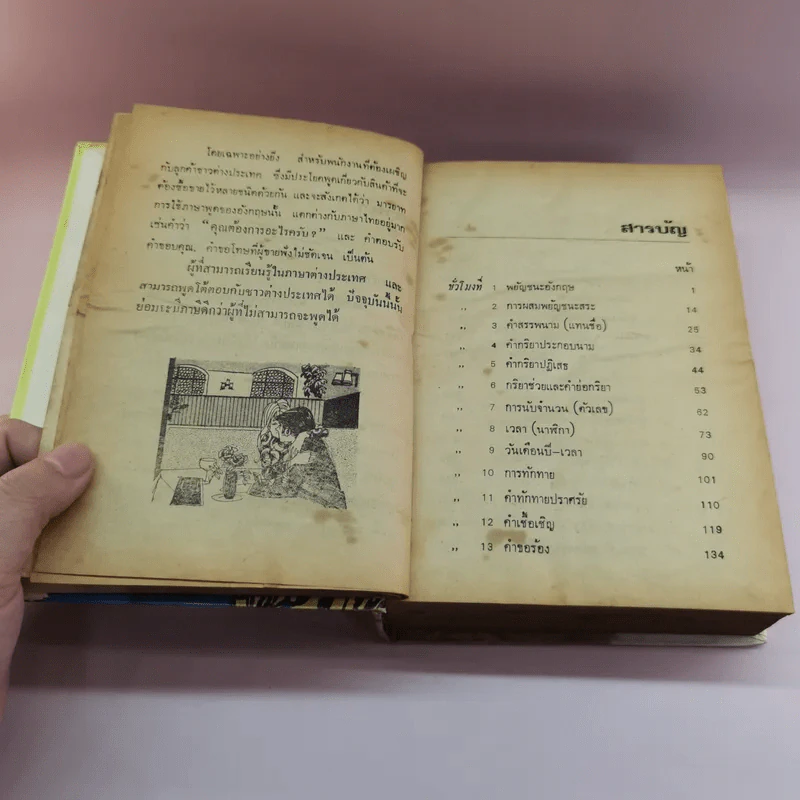 โดยเฉพาะอย่างยิ่ง สำหรับพนักงานที่ต้องเผชิญ
กับลูกค้าชาวต่างประเทศ ซึ่งมีประโยคพูดเกี่ยวกับสินค้าที่จะ
ต้องซื้อขายไว้หลายชนิดด้วยกัน และจะสังเกตได้ว่า มารยาท
การใช้ภาษาพูดของอังกฤษนั้น แตกต่างกับภาษาไทยอยู่มาก
เช่นคำว่า “คุณต้องการอะไรครับ?” และ คำตอบรับ
คำขอบคุณ, คำขอโทษที่ผู้ขายฟังไม่ชัดเจน เป็นต้น
ผู้ที่สามารถเรียนรู้ในภาษาต่างประเทศ และ
สามารถพูดโต้ตอบกับชาวต่างประเทศได้ ปัจจุบันนี้นั้น
ย่อมจะมีภาษีดีกว่าผู้ที่ไม่สามารถจะพูดได้
สารบัญ
หน้า
ชั่วโมงที่ 1 พยัญชนะอังกฤษ 1
,, 2 การผสมพยัญชนะสระ 14
,, 3 คำสรรพนาม (แทนชื่อ) 25
,, 4 คำกริยาประกอบนาม 34
,, 5 คำกริยาปฏิเสธ 44
,, 6 กริยาช่วยและคำย่อกริยา 53
,, 7 การนับจำนวน (ตัวเลข) 62
,, 8 เวลา (นาฬิกา) 73
,, 9 วันเดือนปี–เวลา 90
,, 10 การทักทาย 101
,, 11 คำทักทายปราศรัย 110
,, 12 คำเชื้อเชิญ 119
,, 13 คำขอร้อง 134